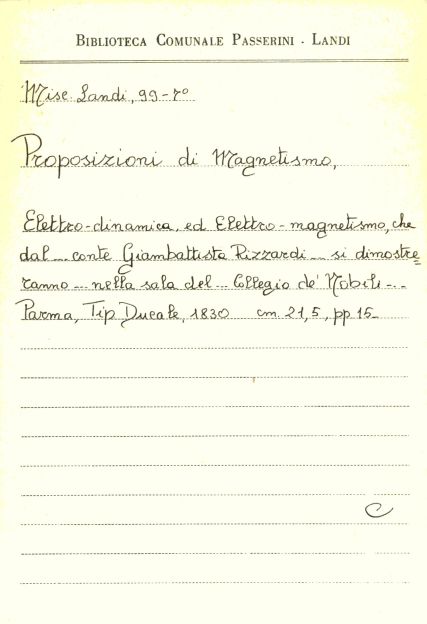 BIBLIOTECA COMUNALE PASSERINI - LANDI
Misc. Landi, 99-7º
Proposizioni di Magnetismo,
Elettro-dinamica, ed Elettro-magnetismo, che
dal ... conte Giambattista Rizzardi ... si dimostre=
ranno ... nella sala del ... Collegio de' Nobili ...
Parma, Tip Ducale, 1830 cm. 21,5, pp 15
C